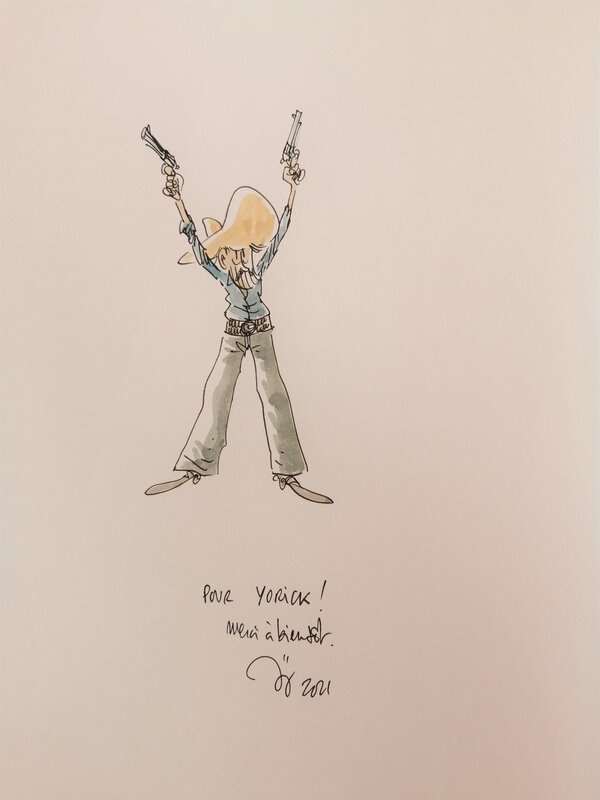 POUR YORICK!
merci à bientôt.
2021